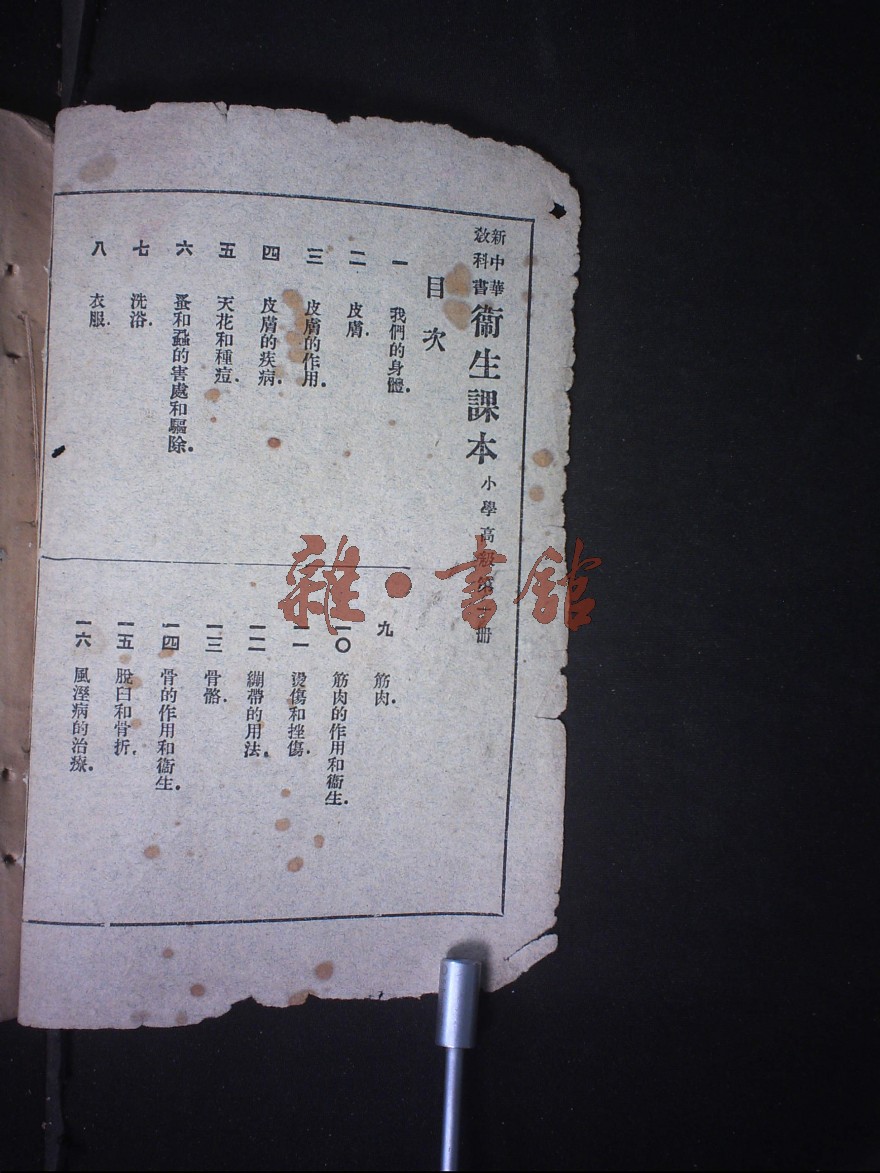 新中華
教科書
衞生課本
小學高級第一册
目次
一 我們的身體.
二 皮膚.
三 皮膚的作用.
四 皮膚的疾病.
五 天花和種痘.
六 蚤和蝨的害處和驅除.
七 洗浴.
八 衣服.
九 筋肉.
一〇 筋肉的作用和衞生.
一一 燙傷和挫傷.
一二 綳帶的用法.
一三 骨骼.
一四 骨的作用和衞生.
一五 脫臼和骨折.
一六 風溼病的治療.
雜·書館